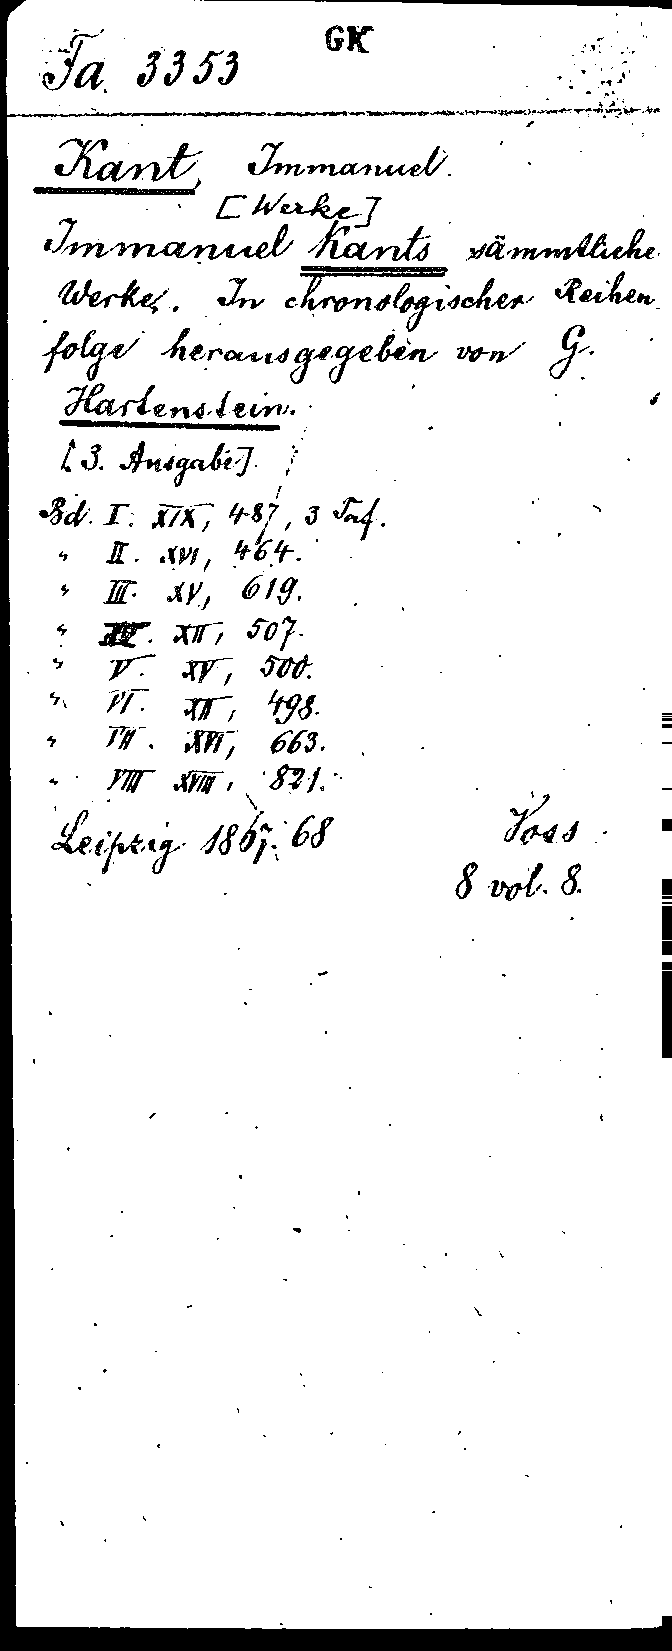 GK
Fa. 3353
Kant, Immanuel.
[Werke]
Immanuel Kants sämmtliche
Werke. In chronologischer Reihen
folge herausgegeben von G.
Hartenstein.
[3. Ausgabe].
Bd. I. XIX, 487, 3 Taf.
" II. XVI, 464.
" III. XV, 619.
" IV. XII, 507.
" V. XV, 500.
" VI. XII, 498.
" VII. XVI, 663.
" VIII XVIII, 821.
Leipzig 1867. 68 Voss
8 vol. 8.